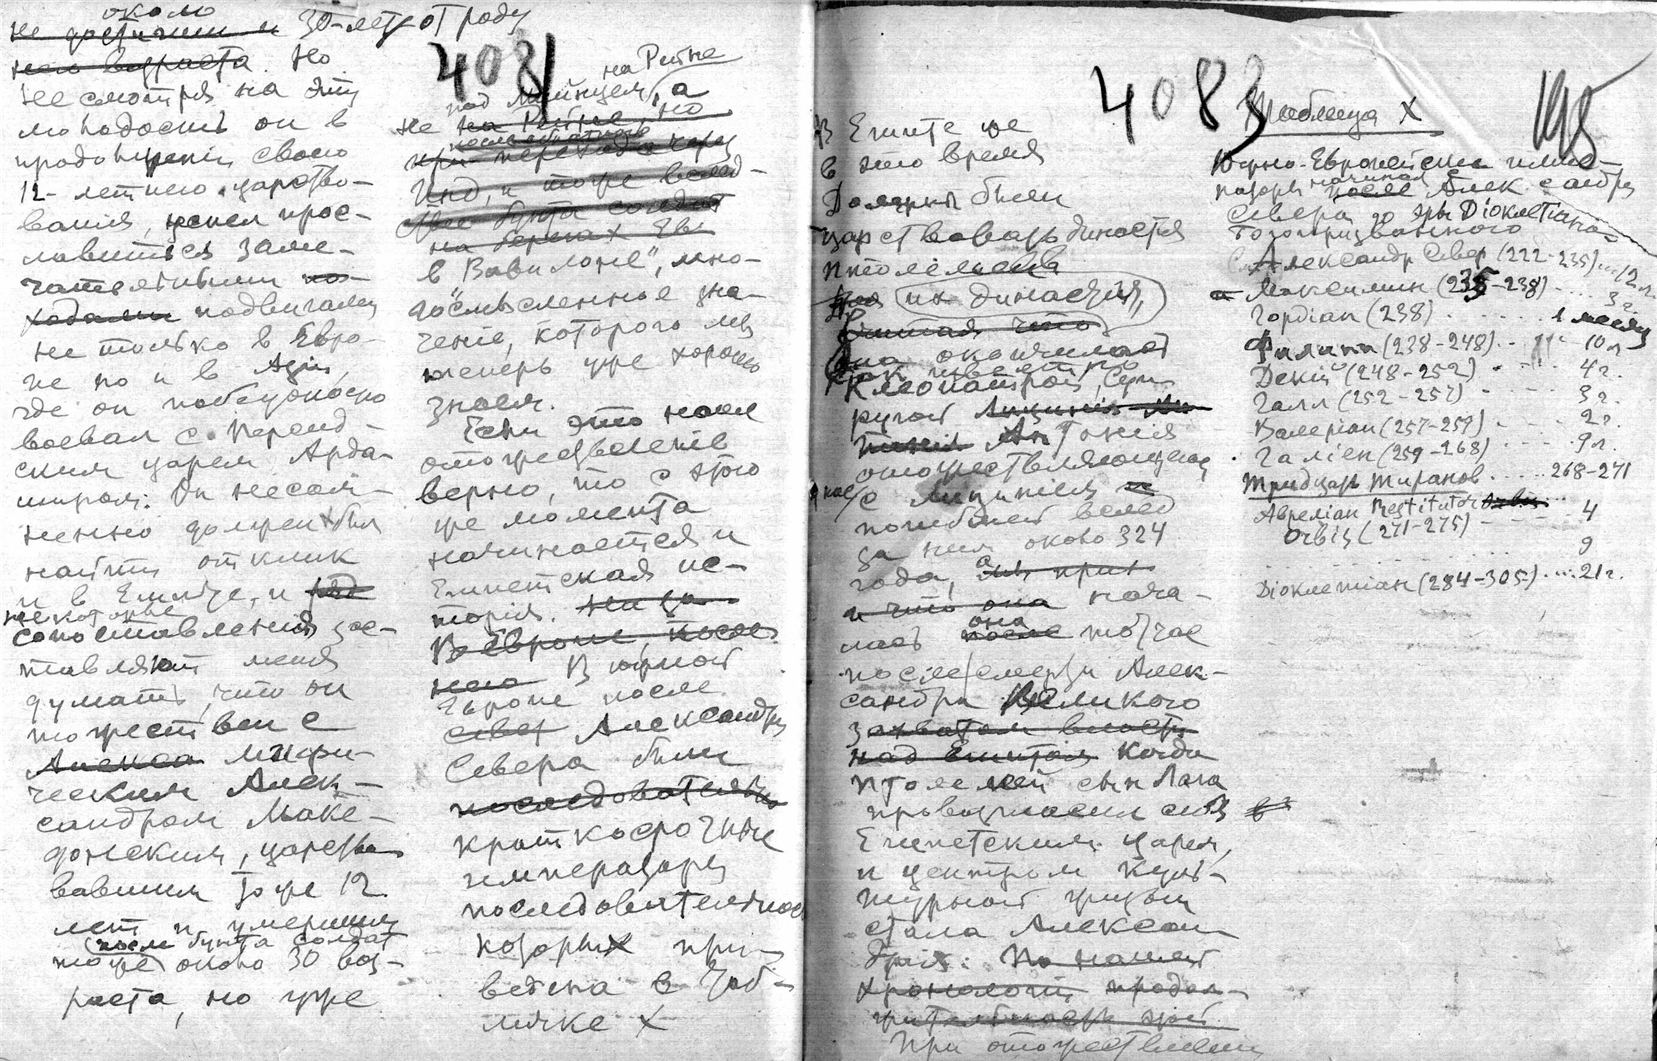 около
не достигши и 30-лет от роду
него возраста. Но
не смотря на эту
молодость он в
продолжении своего
12-летнего царство-
вания, успел прос-
лавиться заме-
чательными по-
ходами подвигами
не только в Евро-
пе но и в Азии,
где он победоносно
воевал с Персид-
ским царем Арда-
широм. Он несом-
ненно должен был
найти отклик
и в Египте, и
некоторые
сопоставления зас-
тавляют меня
думать, что он
тожествен с
Алекса мифи-
ческим Алек-
сандром Маке-
донским, царство-
вавшим тоже 12
лет и умершим
(после бунта солдат
тоже около 30 воз-
раста, но уже
4081
на Рейне
под Майнцем, а
не на Рейне, но
при переходе через
Инд, и тоже вслед-
ствие бунта солдат
на берегах Ев
в "Вавилоне", мно-
госмысленное зна-
чение, которого мы
теперь уже хорошо
знаем.
Если это наше
отожествление
верно, то с этого
же момента
начинается и
Египетская ис-
тория.
В Европе, после
него В южной
Европе после
Север Александра
Севера были
последовательно
краткосрочные
императоры
последовательность
которых при-
ведена в Таб-
личке X
4083
195
В Египте же
в это время
должны были
царствовать династия
Птолемеев
их династия,
считая что
она окончилась
как известно
Клеопатрой, Суп-
ругой Лициния Ли-
циния Антония
отожествляющегося
с Лицинием
погибшей вслед
за ним около 324
года,
и что она нача-
она
лась после тотчас
после смерти Алек-
сандра Великого
захватом власти
над Египтом когда
Птолемей сын Лага
провозгласил себя
Египетским царем,
и центром Куль-
турной жизни
стала Алексан-
дрия. По нашей
хронологии продол-
жительность этой
При отожествлении
Таблица X
Южно-Европейские импе-
раторы начиная с
после Александра
Севера до эры Диоклетиана
Богопризванного
Александр Север (222-235) ... 12 л.
Максимин (235-238) ... 3 г.
Гордиан (238) ... 1 месяц
Филипп (238-248) ... 10 л
Декий (248-252) ... 4 г.
Галл (252-257) ... 3 г.
Валериан (257-259) ... 2 г.
Галиен (259-268) ... 9 л.
Тридцать тиранов ... 268-271
Аврелиан Restitutor
Orbis (271-275) ... 4
... 9
Диоклетиан (284-305) ... 21 г.